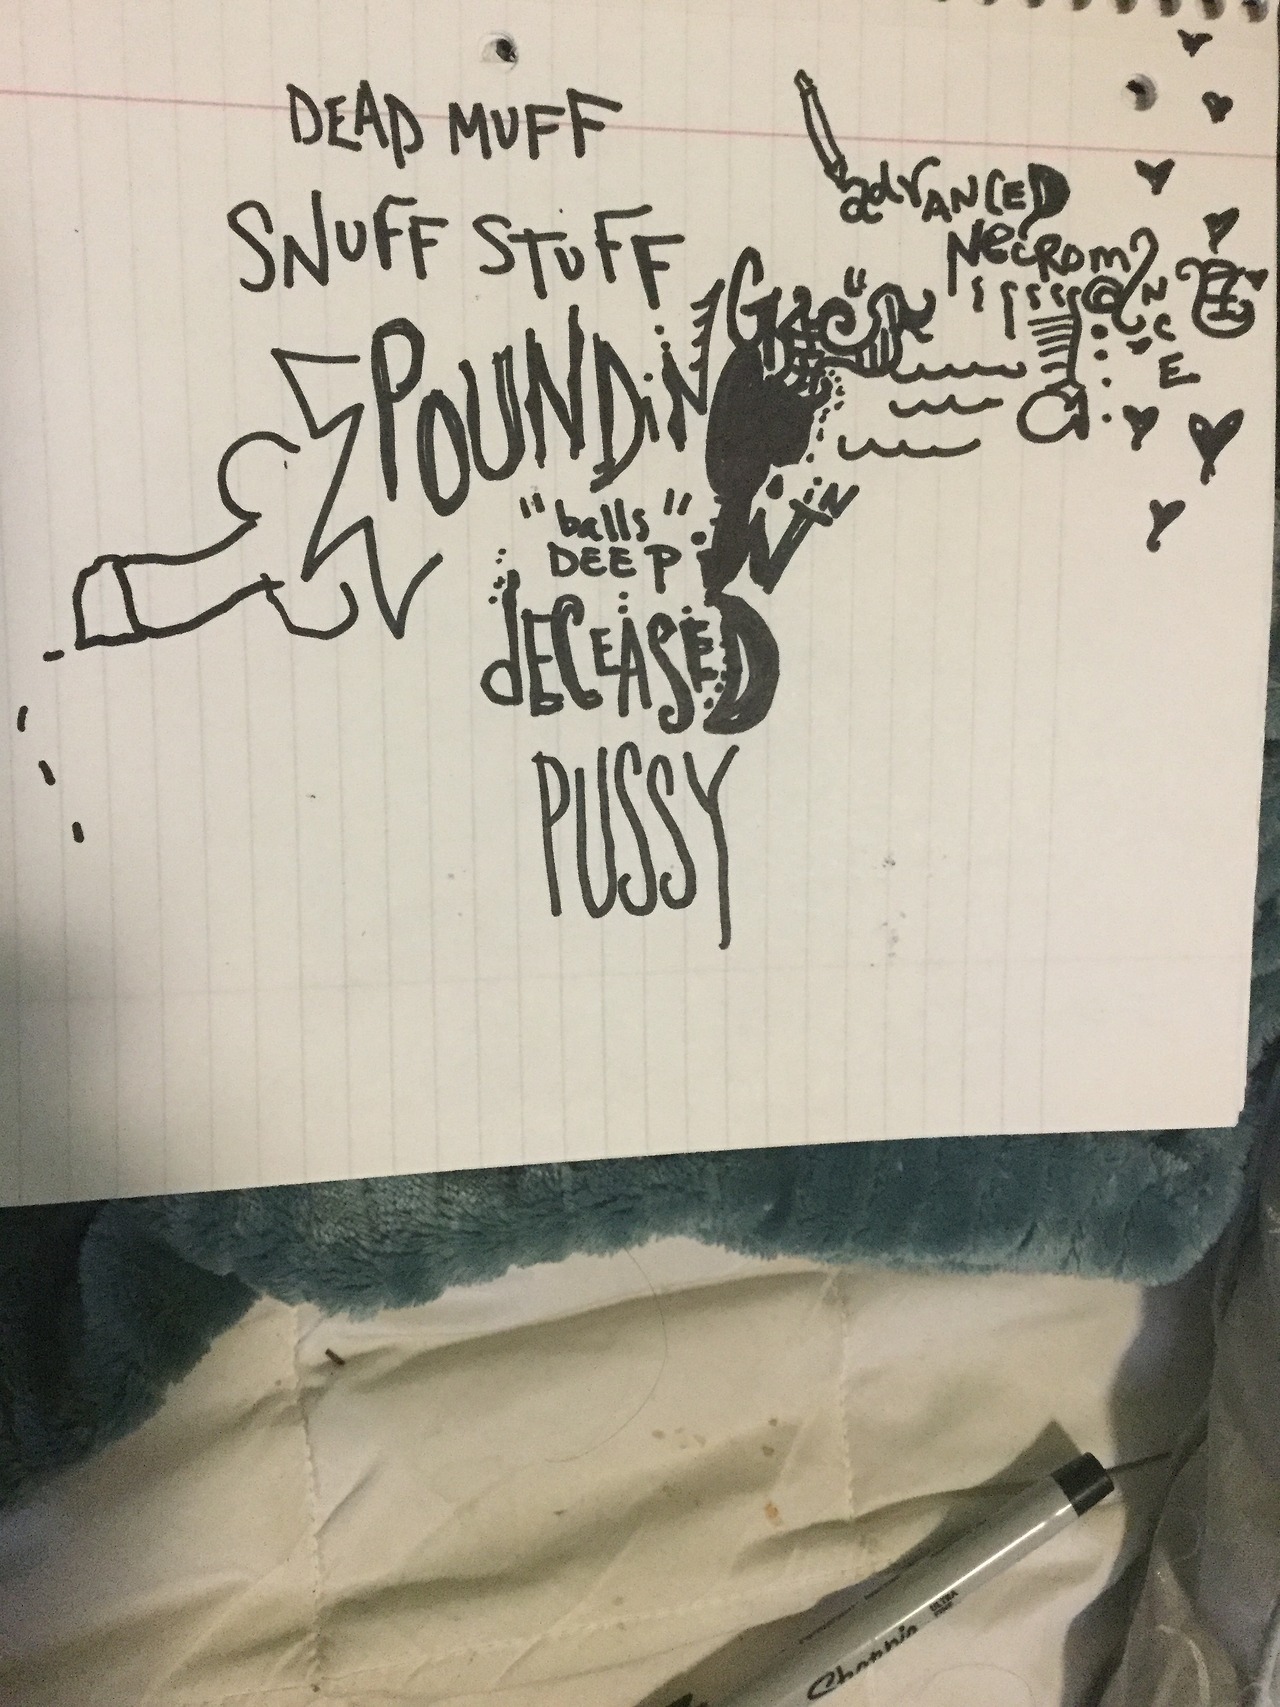 DEAD MUFF
SNUFF STUFF
POUNDiNG
"balls"
DEEP
iN
dECEASED
PUSSY
adVANCED
NeCROm@NCE
Sharpie
ULTRA FINE